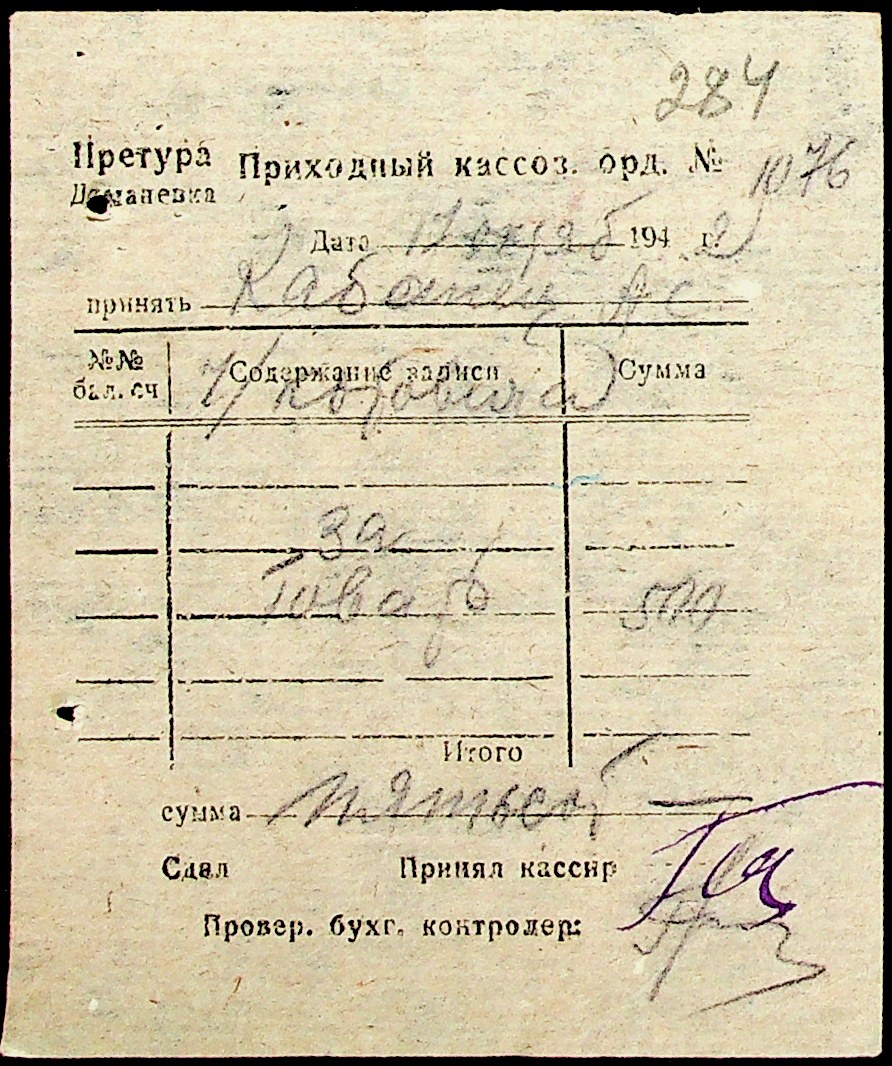 284
Претура Приходный кассов. орд. № 1076
Доманевка
Дата 194 2 г.
принять Кабанец А С
№№ бал. сч Содержание записи Сумма
за
Товар 500
Итого
сумма пятьсот —
Сдал Принял кассир
Провер. бухг. контролер: